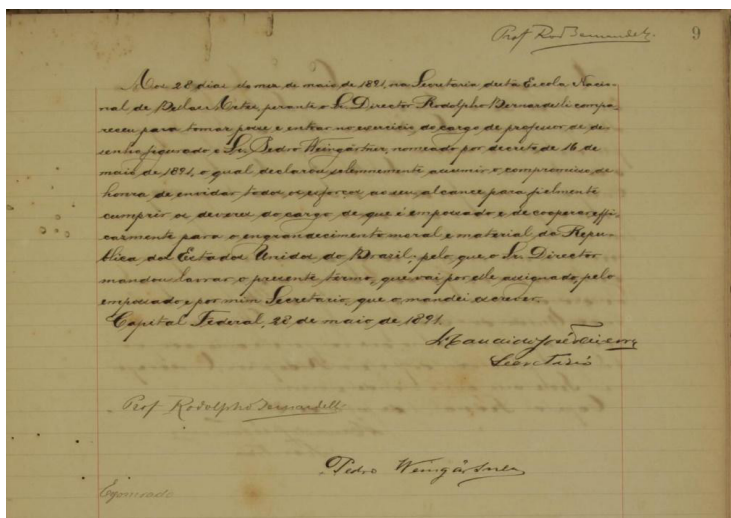 Prof Rod Bernardelli.
9
Aos 28 dias do mez de maio de 1891, na Secretaria desta Escola Nacio-
nal de Bellas Artes, perante o Sr. Director Rodolpho Bernardelli compa-
receu para tomar posse e entrar no exercicio do cargo de professor de de-
senho figurado o Sr. Pedro Weingärtner, nomeado por decreto de 16 de
maio de 1891, o qual declarou solemnemente assumir o compromisso de
honra de envidar todos os esforços ao seu alcance para fielmente
cumprir os deveres do cargo de que é empossado e de cooperar effi-
cazmente para o engrandecimento moral e material da Repu-
blica dos Estados Unidos do Brazil; pelo que o Sr. Director
mandou lavrar o presente termo, que vai por elle assignado, pelo
empossado e por mim Secretario, que o mandei escrever.
Capital Federal, 28 de maio de 1891.
José
Secretario
Prof Rodolpho Bernardelli
Pedro Weingärtner
Exonerado